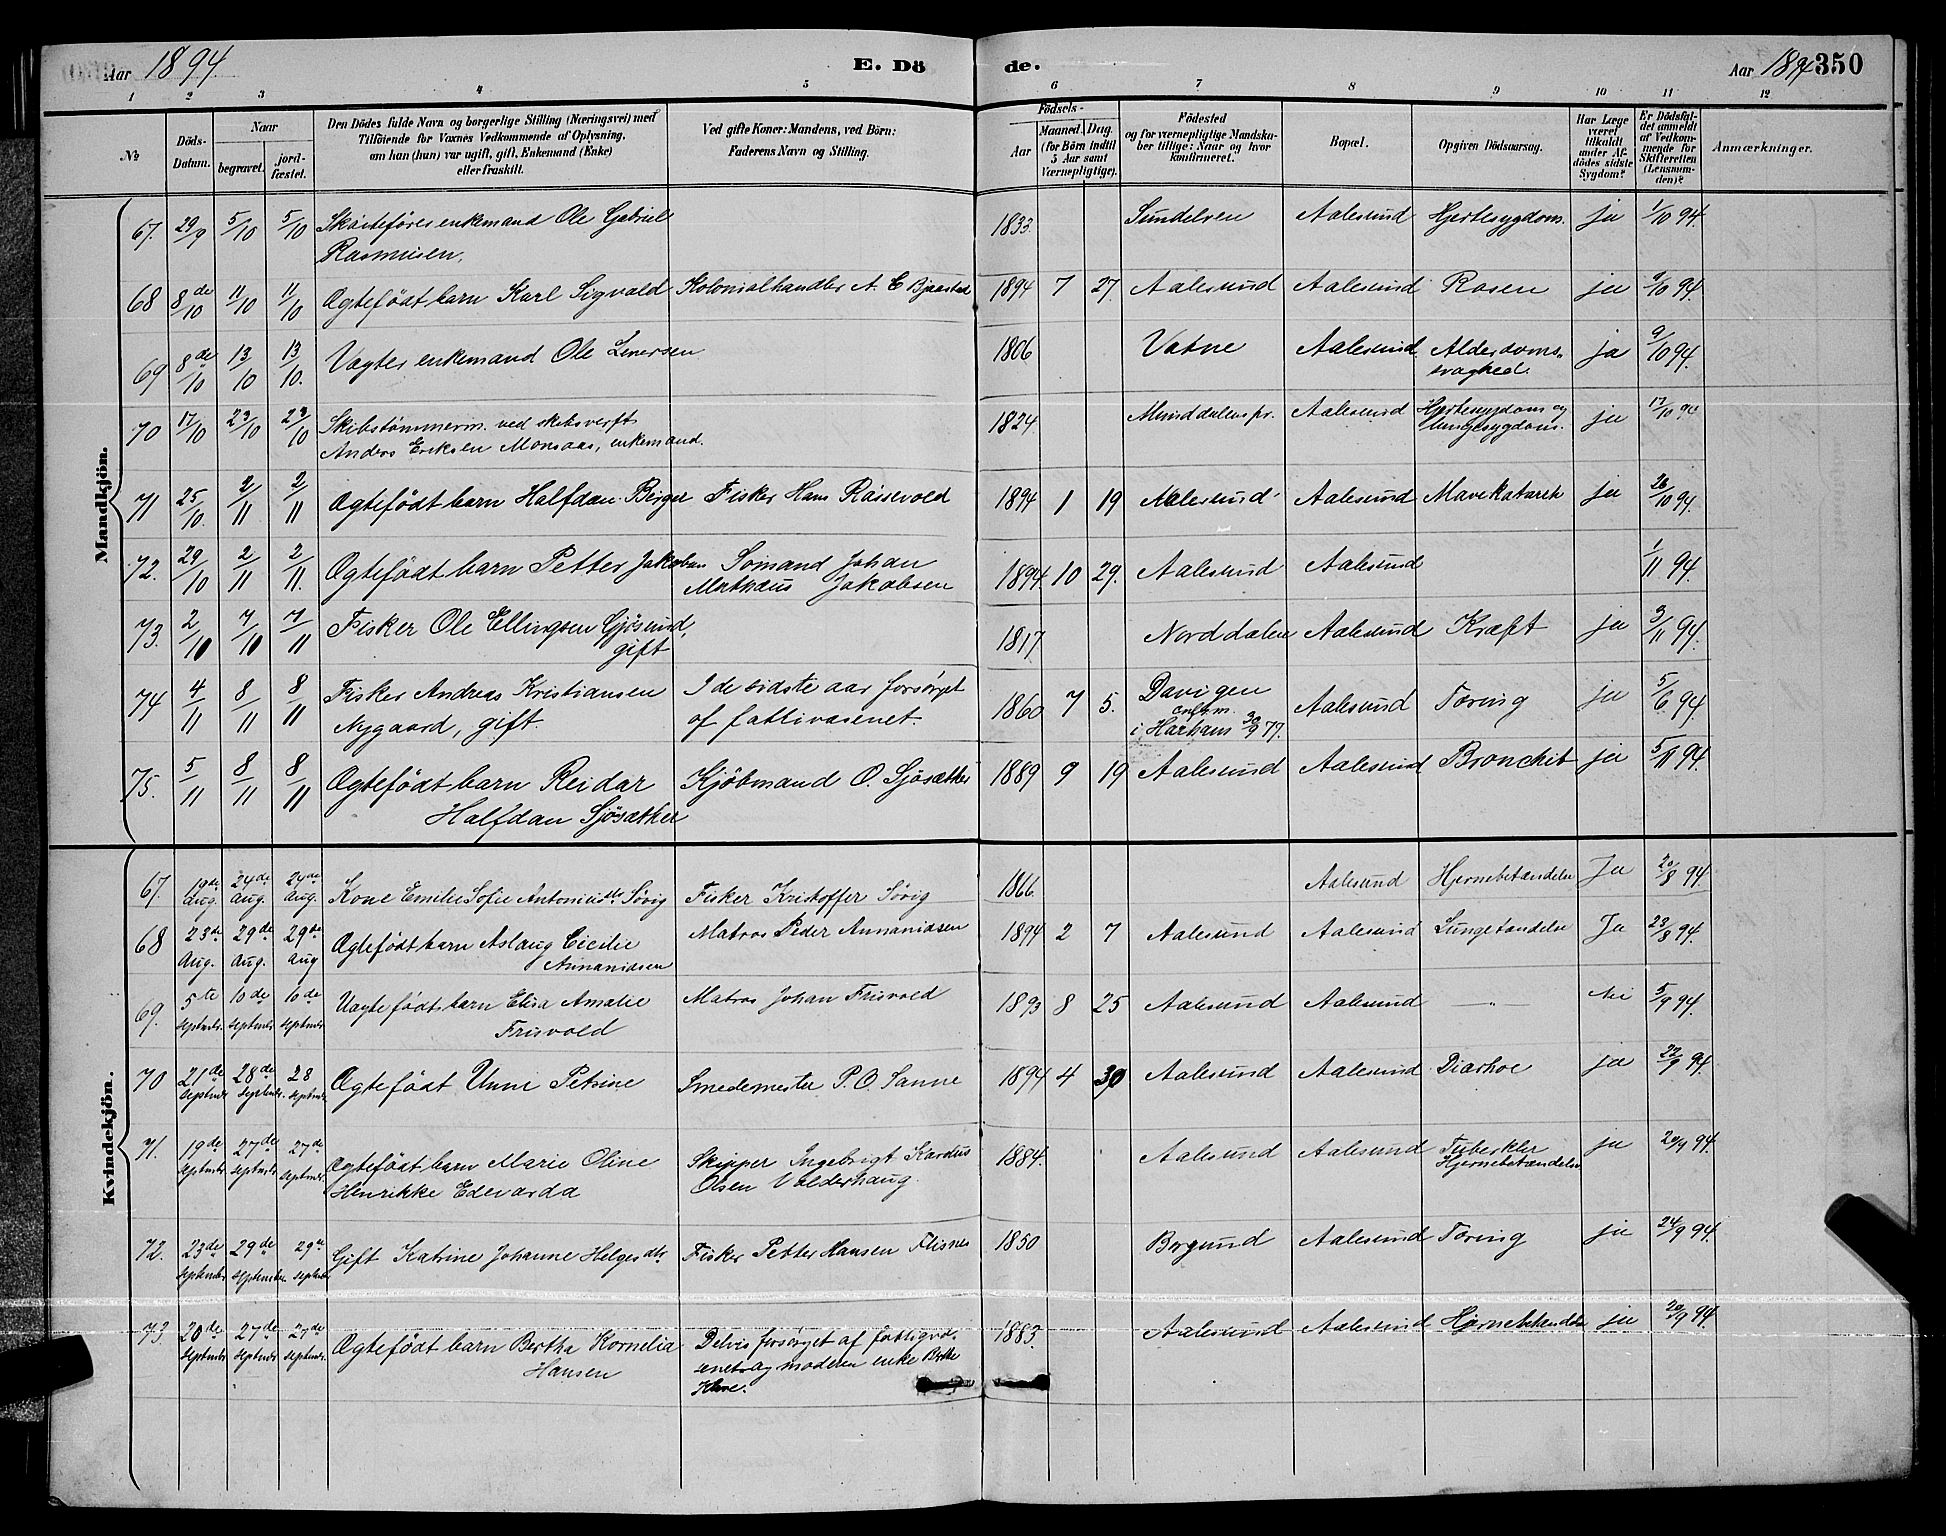 Aar 1894.
E. Dö
de.
Aar 1894
350
1 2 3 4 5 6 7 8 9 10 11 12
№
Döds-
Datum.
Naar
begravet.
jord-
fæstet.
Den Dödes fulde Navn og borgerlige Stilling (Næringsvei) med
Tilföiende for Voxnes Vedkommende af Oplysning,
om han (hun) var ugift, gift, Enkemand (Enke)
eller fraskilt.
Ved gifte Koner: Mandens, ved Börn:
Faderens Navn og Stilling.
Födsels-
Aar
Maaned. Dag.
(for Börn indtil
5 Aar samt
Værnepligtige).
Födested
og for værnepligtige Mandska-
ber tillige: Naar og hvor
konfirmeret.
Bopæl.
Opgiven Dödsaarsag.
Har Læge
været
tilkaldt
under Af-
dödes sidste
Sygdom?
Er Dödsfal-
det anmeldt
af Vedkom-
mende for
Skifteretten
(Lensman-
den)?
Anmærkninger.
Mandkjön.
67. 29/9 5/10 5/10 Skøitefører enkemand Ole Gabriel 1833. Aalesund Hjertesygdom. ja 1/10 94.
Rasmusen.
68 8de/10 11/10 11/10 Ægtefödt barn Karl Sigvald Kolonialhandler A. E Bjaastad 1894 7 27. Aalesund Aalesund Rosen ja 9/10 94.
69 8de/10 13/10 13/10. Vægter enkemand Ole 1806 Vatne Aalesund. Alderdoms- ja 9/10 94.
svaghed.
70 17/10 23/10 23/10 Skibstømmerm. ved skibsverft 1824 Aalesund Hjertesygdom og ja 17/10 94
Anders Eriksen Monsaas, enkemand. lungesygdom.
71 25/10. 2/11 2/11 Ægtefödt barn Halfdan Birger Fisker Hans Røssevold 1894 1 19 Aalesund Aalesund Mavekatarrh ja 26/10 94.
72. 29/10 2/11 2/11. Ægtefödt barn Petter Jakobsen Sömand Johan 1894. 10 29. Aalesund Aalesund 1/11 94.
Mathæus Jakobsen
73. 2/10 7/10 7/11 Fisker Ole Ellingsen Gjösund, 1817. Norddalen Aalesund Kræft ja 3/11 94.
gift
74 4/11 8/11 8/11 Fisker Andreas Kristiansen I de sidste aar forsörget 1860 7 5. Davigen Aalesund Tæring ja 5/6 94.
Nygaard, gift. af fattivæsenet. i Harhams 30/9 77.
75. 5/11 8/11 8/11 Ægtefödt barn Reidar Kjöbmand O. Sjösæther 1889 9 19 Aalesund Aalesund Bronchit ja 5/11 94.
Halfdan Sjösæther
Kvindekjön.
67. 19de Aug. 24de Aug. 24de Aug. Kone Emilie Sofie Antonsdtr Søvig Fisker Kristoffer Søvig 1866. Aalesund Hjernebetændelse Ja 20/8 94.
68 23de Aug. 29de Aug. 29de Aug Ægtefödt barn Aslaug Cicilie Matros Peder Annanidsen 1894 2 7 Aalesund Aalesund Lungebetændelse Ja 23/8 94.
Annanidsen
69. 5te septembr. 10de septembr. 10de septembr. Uægtefödt barn Elisa Amalie Matros Johan Frisvold 1893 8 25 Aalesund Aalesund — „ — Nei 5/9 94.
Frisvold
70 21de septembr 28de septembr. 28 septembr. Ægtefödt Unni Petrine Smedemester P. O. Sanne 1894 4 30 Aalesund Aalesund Diarhoe ja 22/9 94.
71. 19de septembr 27de septembr 27de septembr. Ægtefödt barn Marie Oline Skipper Ingebrigt Kardus 1884. Aalesund Aalesund Tuberkler ja 20/9 94.
Henrikke Edevarda Olsen Valderhaug. Hjernebetændelse
72. 23de septembr 29de septembr. 29de septembr Gift Katrine Johanne Helgesdtr Fisker Petter Hansen Flisnes 1850 Borgund Aalesund Tæring ja 24/9 94.
73 20de septembr 27de septembr 27de septembr. Ægtefödt barn Bertha Kornelia Delvis forsörget af fattigvæ- 1883. Aalesund Aalesund Hjernebetændelse ja 20/9 94.
Hansen senet og moderen enke